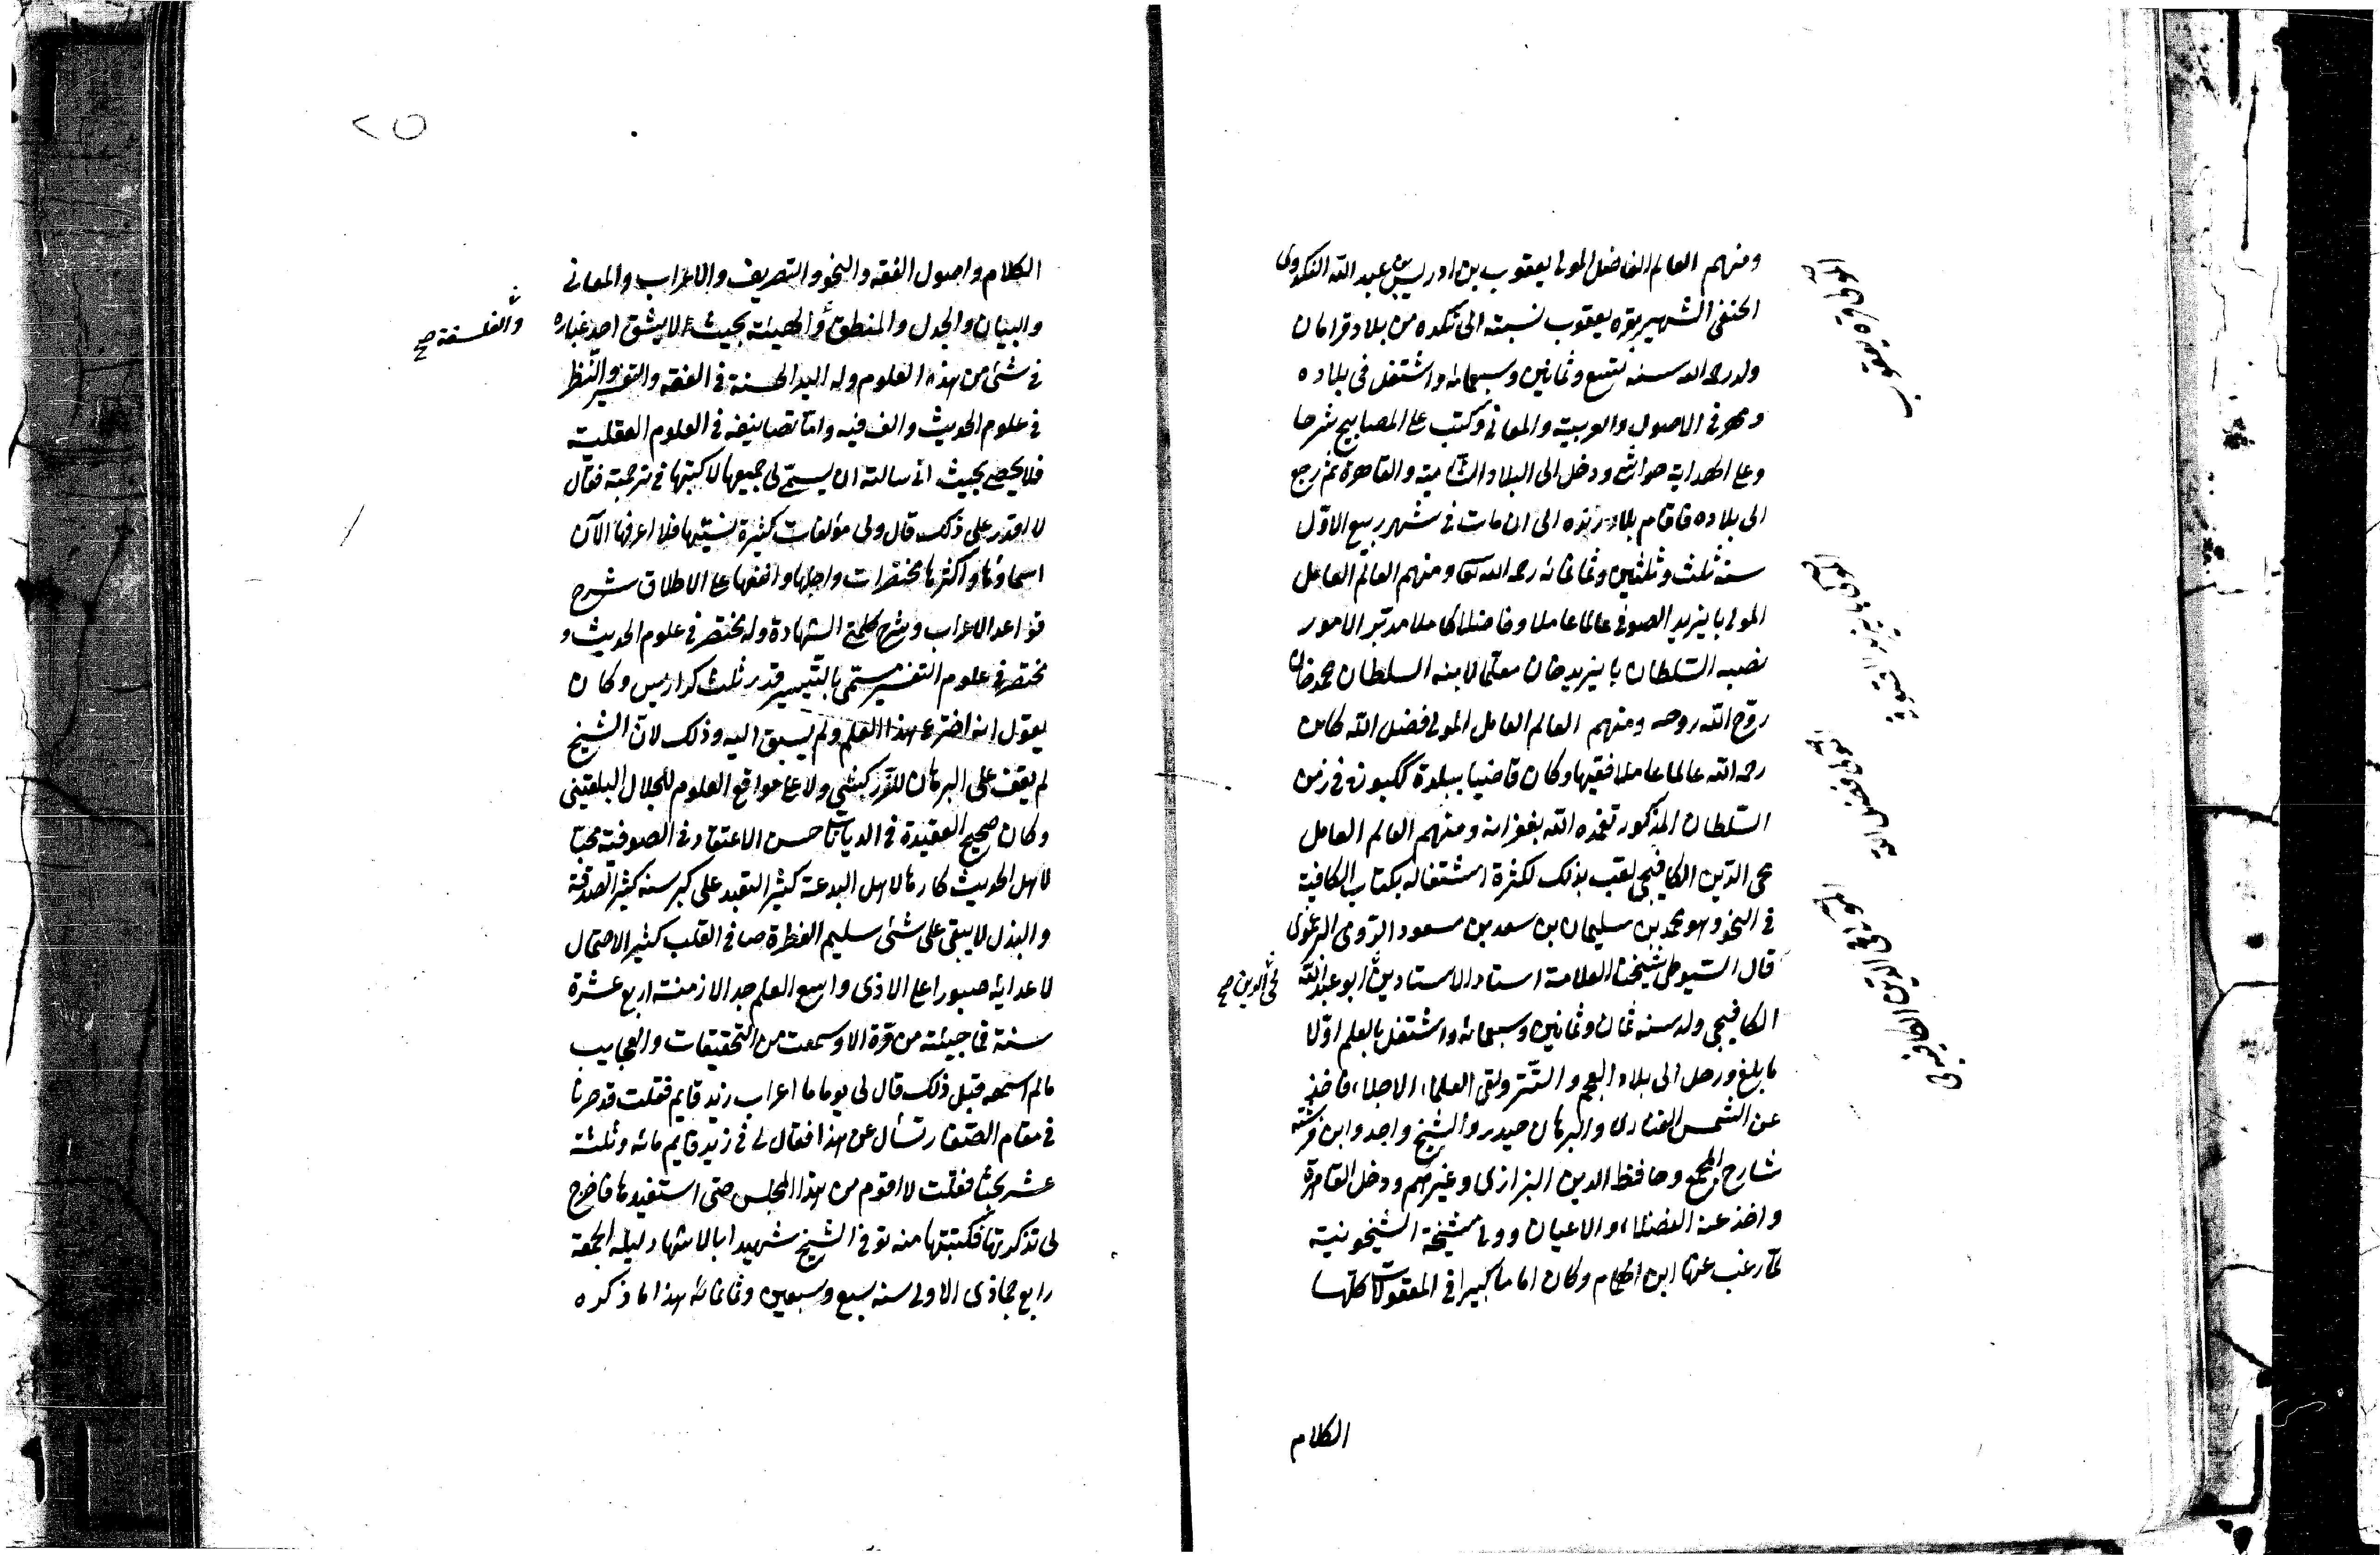 ومنهم العالم الفاضل المولى يعقوب بن ادريس بن عبد الله النكدوى
الحنفى الشهير بقره يعقوب نسبته الى نكده من بلاد قرامان
ولد رحمه الله سنه تسع وثمانين وسبعمائه واشتغل فى بلاده
ومهر فى الاصول والعربية والمعانى وكتب على المصابيح شرحا
وعلى الهداية حواشى ودخل الى البلاد الشامية والقاهرة ثم رجع
الى بلاده فاقام بلارنده الى ان مات فى شهر ربيع الاوّل
سنة ثلث وثلثين وثمانمائه رحمه الله تعالى ومنهم العالم العامل
المولى بايزيد الصوفى عالما عاملا وفاضلا كاملا مدبّر الامور
نصبه السّلطان بايزيد خان معلما لابنه السلطان محمد خان
روّح الله روحه ومنهم العالم العامل المولى فضل الله كان
رحمه الله عالما عاملا فقيها وكان قاضيا ببلدة ككبوزه فى زمن
السّلطان المذكور تغمّده الله بغفرانه ومنهم العالم العامل
محى الدّين الكافيجى لقب بذلك لكثرة اشتغاله بكتاب الكافية
فى النحو وهو محمد بن سليمان بن سعد بن مسعود الرّومى البرغموى
قال السّيوطى شيخنا العلامة استاد الاستادين ابو عبد الله
محى الدين صح
الكافيجى ولد سنه ثمان وثمانين وسبعمائه واشتغل بالعلم اوّلا
ما بلغ ورحل الى بلاد العجم والتّتر ولقى العلماء الاجلاء فاخذ
عن الشمس الفنارى والبرهان حيدر والشيخ واجد وابن فرشته
شارح المجمع وحافظ الدين البزازى وغيرهم ودخل القاهرة
واخذ عنه الفضلاء والاعيان وولى مشيخة الشيخونية
لمّا رغب عنها ابن الهمام وكان اماما كبيرا فى المعقولات كلّها
الكلام
المولى قره يعقوب
المولى بايزيد الصوفى
المولى فضل الله
المولى محى الدين الكافيجى
٢٥
الكلام واصول الفقه والنحو والتصريف والاعراب والمعانى
والبيان والجدل والمنطق والهيئة بحيث لا يشق احد غباره
والفلسفة صح
فى شئ من هذه العلوم وله اليد الحسنة فى الفقه والتفسير والنّظر
فى علوم الحديث والف فيه وامّا تصانيفه فى العلوم العقلية
فلا تحصى بحيث انى سالته ان يسمّى لى جميعها لاكتبها فى ترجمته فقال
لا اقدر على ذلك قال ولى مؤلفات كثيرة نسيتها فلا اعرف الآن
اسماؤها واكثرها مختصرات واجلها وانفعها على الاطلاق شرح
قواعد الاعراب وشرح كلمتى الشهادة وله مختصر فى علوم الحديث و
مختصر فى علوم التفسير مسمّى بالتّيسير قدر ثلث كراريس وكان
يقول انه اخترع هذا العلم ولم يسبق اليه وذلك لانّ الشيخ
لم يقف على البرهان للزّركشى ولا على مواقع العلوم للجلال البلقينى
وكان صحيح العقيدة فى الديانات حسن الاعتقاد فى الصوفية محبا
لاهل الحديث كارها لاهل البدعة كثير التعبد على كبر سنه كثير الصدقة
والبذل لا يبقى على شئ سليم الفطرة صافى القلب كثير الاحتمال
لاعدائه صبورا على الاذى واسع العلم جدا لازمته اربع عشرة
سنة فما جئته من مرّة الا وسمعت من التحقيقات والعجايب
ما لم اسمعه قبل ذلك قال لى يوما ما اعراب زيد قايم فقلت قد صرنا
فى مقام الصّغار نسأل عن هذا فقال لى فى زيد قايم مائه وثلثة
عشر بحثا فقلت لا اقوم من هذا المجلس حتى استفيدها فاخرج
لى تذكرتها فكتبتها منه توفى الشيخ شهيدا بالاسهال ليله الجمعة
رابع جماذى الاولى سنه سبع وسبعين وثمانمائه هذا ما ذكره